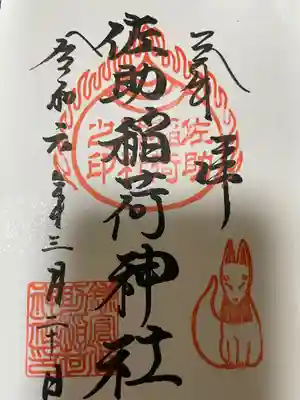 奉拝
佐助稲荷神社
令和六年三月二十日
佐助
稲荷
之印